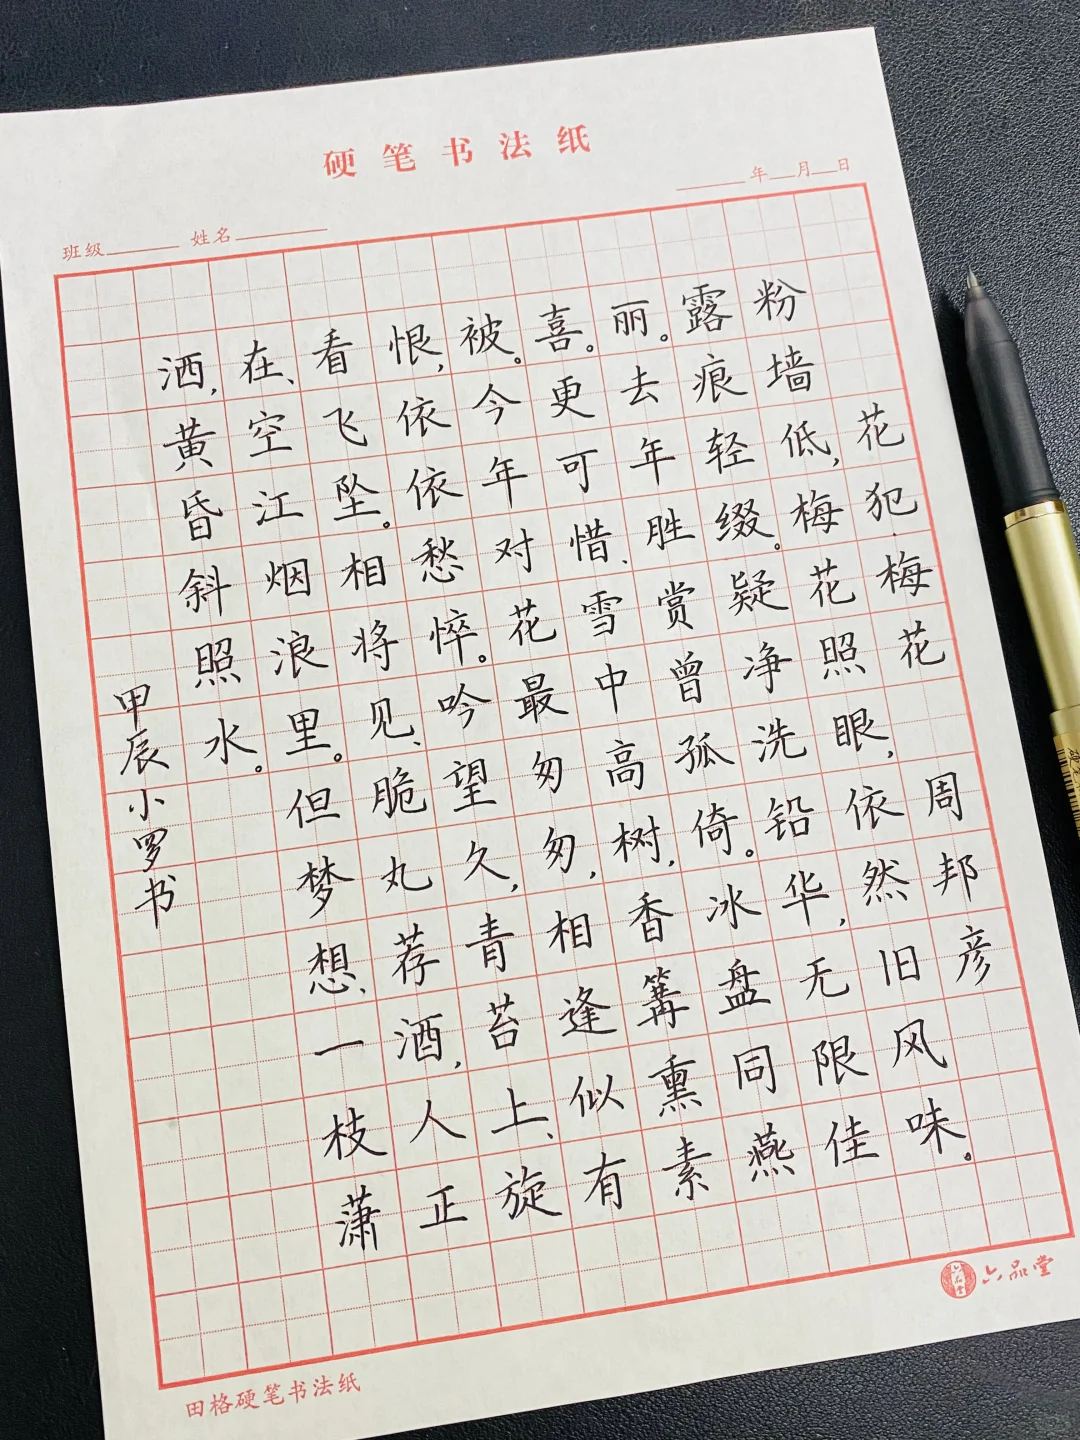 硬笔书法纸
年 月 日
班级 姓名
花犯·梅花 周邦彦
粉墙低,梅花照眼,依然旧风味。
露痕轻缀。疑净洗铅华,无限佳
丽。去年胜赏曾孤倚。冰盘同燕
喜。更可惜、雪中高树,香篝熏素
被。今年对花最匆匆,相逢似有
恨,依依愁悴。吟望久,青苔上、旋
看飞坠。相将见、脆丸荐酒,人正
在、空江烟浪里。但梦想、一枝潇
洒,黄昏斜照水。
甲辰小罗书
六品堂
六品堂
田格硬笔书法纸